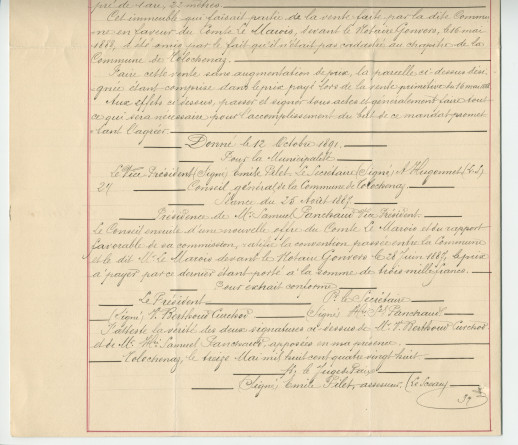 pré de l'au, 22 mètres.
Cet immeuble qui faisait partie de la vente faite par la dite Commu
ne en faveur du Comte Le Marois, devant le Notaire Gonvers, le 16 mai
1888, a été omis par le fait qu'il n'était pas cadastré au chapitre de la
Commune de Tolochenaz.
Faire cette vente sans augmentation de prix, la parcelle ci-dessus dési
gnée étant comprise dans le prix payé lors de la vente primitive du 16 mai 1888
Aux effets ci dessus, passer et signer tous actes et généralement faire tout
ce qui sera necessaire pour l'accomplissement du but de ce mandat promet
tant l'agréer.
Donné le 12 Octobre 1891.
Pour la Municipalité
Le Vice Président (Signé) Emile Pilet. Le Secrétaire (Signé) A Hugonnet (L.S)
27 Conseil général de la Commune de Tolochenaz
Séance du 25 Août 1887
Présidence de Mr Samuel Panchaud Vice Président.
Le Conseil ensuite d'une nouvelle offre du Comte Le Marois et du rapport
favorable de sa commission, ratifie la convention passée entre la Commune
et le dit Mr Le Marois devant le Notaire Gonvers le 28 Juin 1887, le prix
à payer par ce dernier étant porté à la somme de trois mille francs.
Pour extrait conforme
Le Président Pr le Secrétaire
(Signé) V. Berthoud Curchod Signé Panchaud
J'atteste la vérité des deux signatures ci-dessus de Mr V. Berthoud Curchod
et de Mr Samuel Panchaud apposées en ma présence.
Tolochenaz, le treize Mai mil huit cent quatre vingt huit
Le Juge de Paix
(Signé) Emile Pilet, assesseur. (Le Sceau)